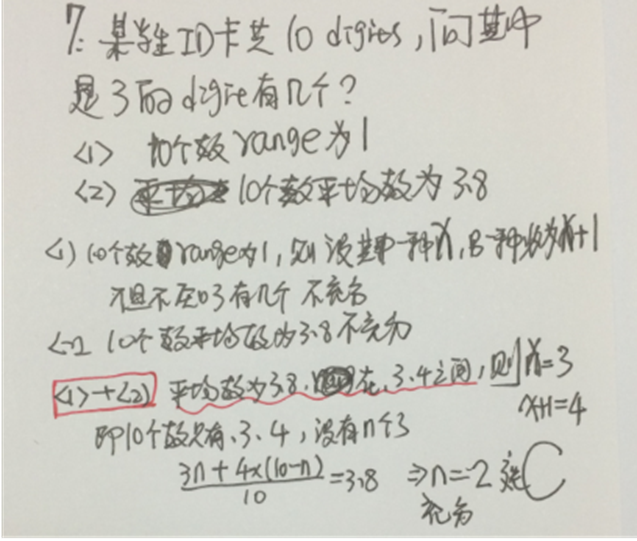 7. 某学生ID卡共10 digits,问其中
是3的digit有几个?
<1> 10个数range为1
<2> 10个数平均数为3.8
<1> 10个数range为1,则设其中一种x,另一种必为x+1
但不知3有几个 不充分
<2> 10个数平均数为3.8不充分
<1>+<2> 平均数为3.8,在3.4之间,则x=3
x+1=4
即10个数只有.3.4,设有n个3
3n+4x(10-n)/10=3.8 ⇒n=2 选C
充分